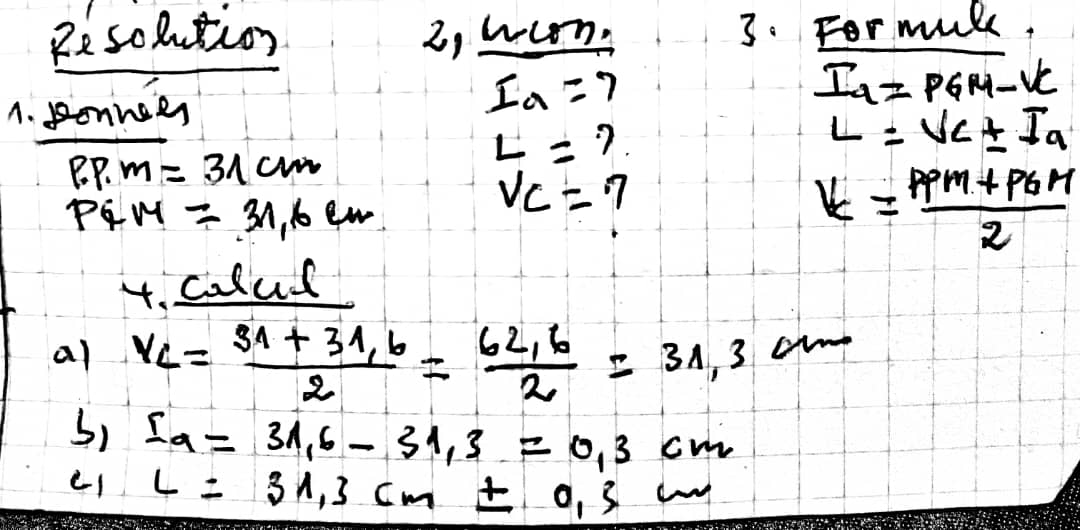 Résolution
1. Données
P.P.M = 31 cm
PGM = 31,6 cm
2, Incon.
Ia = ?
L = ?
VC = ?
3. Formule.
Ia = PGM - VC
L = VC ± Ia
Vc = (PPM + PGM) / 2
4. Calcul
a) VC = (31 + 31,6) / 2 = 62,6 / 2 = 31,3 cm
b) Ia = 31,6 - 31,3 = 0,3 cm
c) L = 31,3 cm ± 0,3 cm